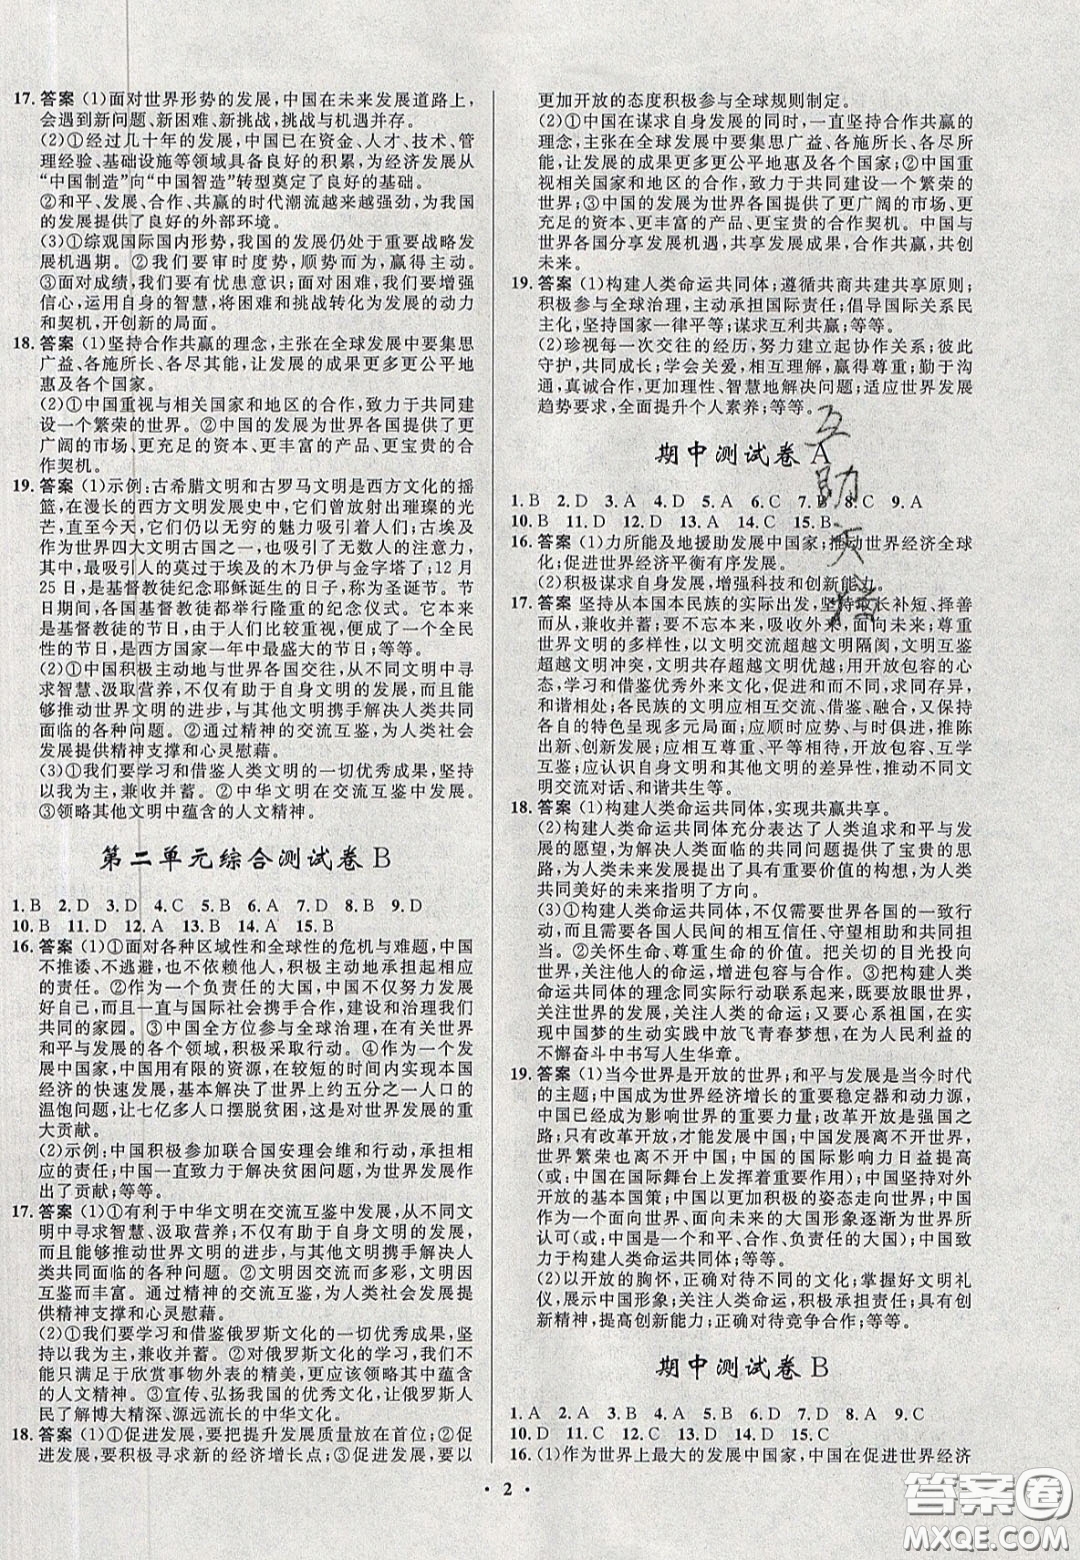 17. 答案 (1)面对世界形势的发展,中国在未来发展道路上,
会遇到新问题、新困难、新挑战,挑战与机遇并存。
(2)①经过几十年的发展,中国已在资金、人才、技术、
管理经验、基础设施等领域具备良好的积累,为经济发展
从“中国制造”向“中国智造”转型奠定了良好的基础。
②和平、发展、合作、共赢的时代潮流越来越强劲,为我国
的发展提供了良好的外部环境。
(3)①综观国际国内形势,我国的发展仍处于重要战略
发展机遇期。②我们要审时度势,顺势而为,赢得主动。
③面对成绩,我们要有忧患意识;面对困难,我们要增强
信心,运用自身的智慧,将困难和挑战转化为发展的动力
和契机,开创新的局面。
18. 答案 (1)坚持合作共赢的理念,主张在全球发展中要集思
广益、各施所长、各尽其能,让发展的成果更多更公平地
惠及各个国家。
(2)①中国重视与相关国家和地区的合作,致力于共同建
设一个繁荣的世界。②中国的发展为世界各国提供了更
广阔的市场、更充足的资本、更丰富的产品、更宝贵的合
作契机。
19. 答案 (1)示例:古希腊文明和古罗马文明是西方文化的摇
篮,在漫长的西方文明发展史中,它们曾放射出璀璨的光
芒,直至今天,它们仍以无穷的魅力吸引着人们;古埃及
作为世界四大文明古国之一,也吸引了无数人的注意力,
其中,最吸引人的莫过于埃及的木乃伊与金字塔了;12月
25日,是基督教徒纪念耶稣诞生的日子,称为圣诞节。节
日期间,各国基督教徒都举行隆重的纪念仪式。它本来
是基督教徒的节日,由于人们比较重视,便成了一个全民
性的节日,是西方国家一年中最盛大的节日;等等。
(2)①中国积极主动地与世界各国交往,从不同文明中寻
求智慧、汲取营养,不仅有助于自身文明的发展,而且能
够推动世界文明的进步,与其他文明携手解决人类共同
面临的各种问题。②通过精神的交流互鉴,为人类社会
发展提供精神支撑和心灵慰藉。
(3)①我们要学习和借鉴人类文明的一切优秀成果,坚持
以我为主、兼收并蓄。②中华文明在交流互鉴中发展。
③领略其他文明中蕴含的人文精神。
第二单元综合测试卷 B
1. B 2. D 3. D 4. C 5. B 6. A 7. D 8. B 9. D
10. B 11. D 12. A 13. B 14. A 15. B
16. 答案 (1)①面对各种区域性和全球性的危机与难题,中国
不推诿、不逃避,也不依赖他人,积极主动地承担起相应
的责任。②作为一个负责任的大国,中国不仅努力发展
好自己,而且一直与国际社会携手合作,建设和治理我们
共同的家园。③中国全方位参与全球治理,在有关世界
和平与发展的各个领域,积极采取行动。④作为一个发
展中国家,中国用有限的资源,在较短的时间内实现本国
经济的快速发展,基本解决了世界上约五分之一人口的
温饱问题,让七亿多人口摆脱贫困,这是对世界发展的重
大贡献。
(2)示例:中国积极参加联合国安理会维和行动,承担相
应的责任;中国一直致力于解决贫困问题,为世界发展作
出了贡献;等等。
17. 答案 (1)①有利于中华文明在交流互鉴中发展,从不同文
明中寻求智慧、汲取营养;不仅有助于自身文明的发展,
而且能够推动世界文明的进步,与其他文明携手解决人
类共同面临的各种问题。②文明因交流而多彩,文明因
互鉴而丰富。通过精神文明的交流互鉴,为人类社会提
供精神支撑和心灵慰藉。
(2)①我们要学习和借鉴俄罗斯文化的一切优秀成果,坚
持以我为主、兼收并蓄。②对待俄罗斯文化,我们不能
只满足于欣赏事物外表的精美,更应该领略其中蕴含
的人文精神。③宣传、弘扬我国的优秀文化,让俄罗斯人
民了解博大精深、源远流长的中华文化。
18. 答案 (1)①促进发展,要把提升发展质量放在首位;②促
进发展,要积极寻求新的经济增长点;③促进发展,要以
更加开放的态度积极参与全球规则制定。
(2)①中国在谋求自身发展的同时,一直坚持合作共赢的
理念,主张在全球发展中要集思广益、各施所长、各尽所
能,让发展的成果更多更公平地惠及各个国家;②中国重
视相关国家和地区的合作,致力于共同建设一个繁荣的
世界;③中国的发展为世界各国提供了更广阔的市场、更
充足的资本、更丰富的产品、更宝贵的合作契机。中国与
世界各国分享发展机遇,共享发展成果,合作共赢,共创
未来。
19. 答案 (1)构建人类命运共同体;遵循共商共建共享原则;
积极参与全球治理,主动承担国际责任;倡导国际关系民
主化,坚持国家一律平等;谋求互利共赢;等等。
(2)珍视每一次交往的经历,努力建立起协作关系;彼此
守护,共同成长;学会关爱,相互理解,赢得尊重;勤于沟
通,真诚合作,更加理性、智慧地解决问题;适应世界发展
趋势要求,全面提升个人素养;等等。
期中测试卷 A
1. B 2. D 3. A 4. D 5. A 6. C 7. B 8. C 9. A
10. B 11. D 12. D 13. A 14. C 15. B
16. 答案 (1)力所能及地援助发展中国家;推动世界经济全球
化;促进世界经济平衡有序发展。
(2)积极谋求自身发展,增强科技和创新能力。
17. 答案 坚持从本国本民族的实际出发,坚持取长补短、择善
而从,兼收并蓄;要不忘本来、吸收外来、面向未来;尊重
世界文明的多样性,以文明交流超越文明隔阂、文明互鉴
超越文明冲突,文明共存超越文明优越;用开放包容的心
态,学习和借鉴优秀外来文化,促进和而不同、多元共存、
和谐相处;各民族的文明应相互交流、借鉴、融合,又保持
各自的特色呈现多元局面;应顺时应势、与时俱进,推陈
出新、创新发展;应相互尊重、平等相待,开放包容、互学
互鉴;应认识自身文明和其他文明的差异性,推动不同文
明交流对话、和谐共生。
18. 答案 (1)构建人类命运共同体,实现共赢共享。
(2)构建人类命运共同体充分表达了人类追求和平与发
展的愿望,为解决人类问题贡献了宝贵的思想资源,为人
类共同美好的未来指明了方向。
(3)①构建人类命运共同体,不仅需要世界各国的一致行
动,而且需要各国人民间的相互信任、守望相助和共同担
当。②关怀生命、尊重生命的价值。把关切的目光投向
世界,关注他人的命运,增进包容与合作。③把构建人类
命运共同体的理念同实际行动联系起来,既要放眼世界,
关注世界的发展,关注人类的命运;又要心系祖国,在实
现中国梦的生动实践中放飞青春梦想,在为人民利益的
不懈奋斗中书写人生华章。
19. 答案 (1)当今世界是开放的世界;和平与发展是当今时代
的主题;中国成为世界经济增长的重要稳定器和动力源,
中国已经成为影响世界的重要力量;改革开放是强国之
路;只有改革开放,才能发展中国;中国发展离不开世界,
世界繁荣也离不开中国;中国的国际影响力日益提高
(或:中国在国际舞台上发挥着重要作用);中国坚持对外
开放的基本国策;中国以更加积极的姿态走向世界;中国
作为一个面向世界、面向未来的大国形象逐渐为世界所
认可(或:中国是一个和平、合作、负责任的大国);中国致
力于构建人类命运共同体;等等。
(2)以开放的胸怀,正确对待不同的文化;掌握好文明礼
仪,展示中国形象;关注人类命运,积极承担责任;具有开
创精神,提高创新能力;正确对待竞争合作;等等。
期中测试卷 B
1. A 2. A 3. B 4. C 5. B 6. D 7. D 8. A 9. C
10. D 11. C 12. D 13. D 14. D 15. C
16. (1)作为世界上最大的发展中国家,中国在促进世界经济
· 2 ·
互助文档
答案圈
MXQE.COM